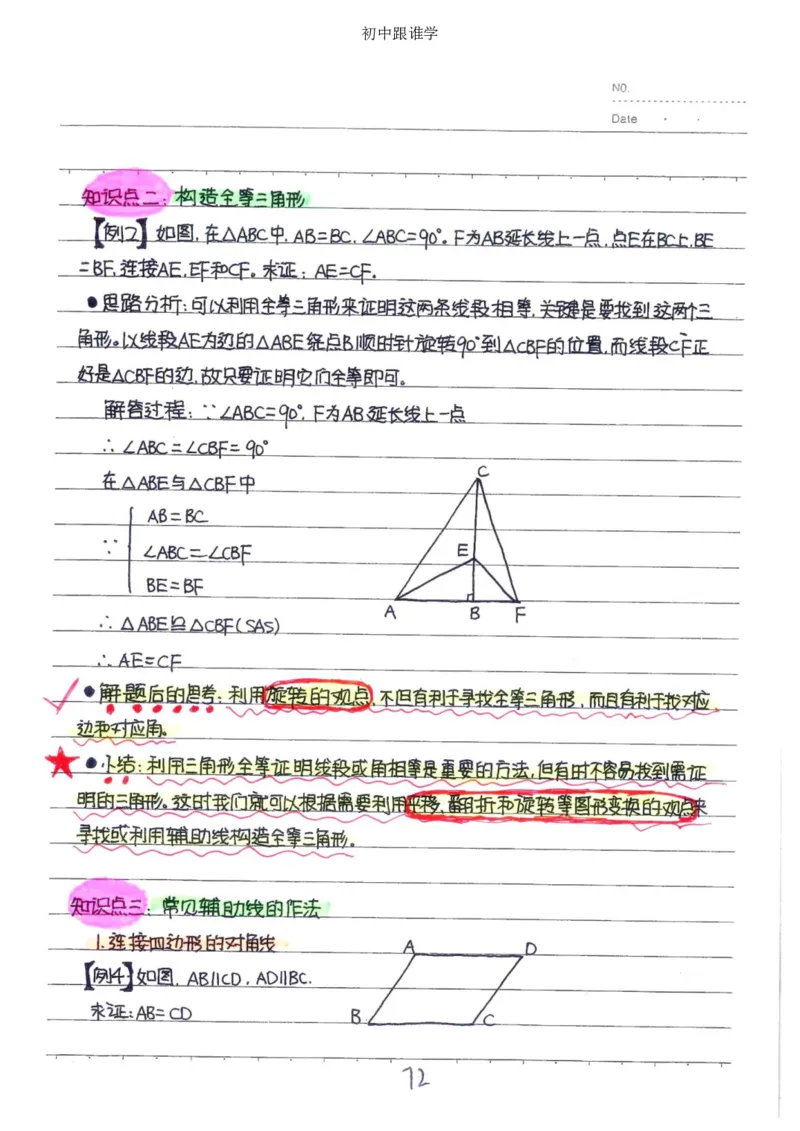 初中跟谁学
NO.
Date
知识点二：构造全等三角形
【例2】如图,在△ABC中,AB=BC,∠ABC=90°。F为AB延长线上一点,点E在BC上,BE
=BF,连接AE,EF和CF。求证：AE=CF.
●思路分析：可以利用全等三角形来证明这两条线段相等,关键是要找到这两个三
角形。以线段AE为边的△ABE绕点B顺时针旋转90°到△CBF的位置,而线段CF正
好是△CBF的边,故只要证明它们全等即可。
解答过程：∵∠ABC=90°,F为AB延长线上一点
∴∠ABC=∠CBF=90°
在△ABE与△CBF中
AB=BC
∵ ∠ABC=∠CBF
BE=BF
∴△ABE≌△CBF(SAS)
∴AE=CF
C
E
A B F
●解题后的思考：利用旋转的观点,不但有利于寻找全等三角形,而且有利于找对应
边和对应角。
★●小结：利用三角形全等证明线段或角相等是重要的方法,但有时不容易找到需证
明的三角形。这时我们就可以根据需要利用平移、翻折和旋转等图形变换的观点来
寻找或利用辅助线构造全等三角形。
知识点三：常见辅助线的作法
1.连接四边形的对角线
【例4】如图,AB∥CD,AD∥BC.
求证：AB=CD
A D
B C
72